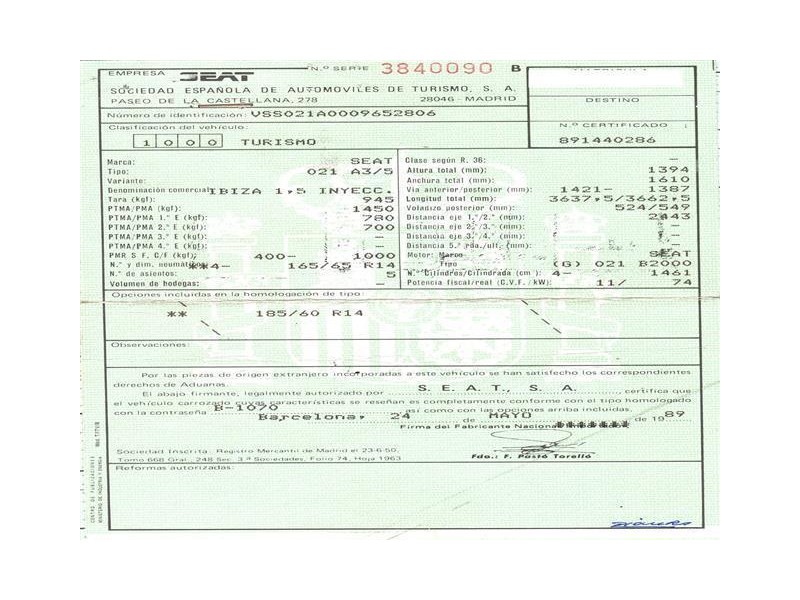 EMPRESA SEAT N.º SERIE 3840090 B
SOCIEDAD ESPAÑOLA DE AUTOMOVILES DE TURISMO, S. A.
PASEO DE LA CASTELLANA, 278 28046 - MADRID
DESTINO
Número de identificación: VSS021A0009652806
N.º CERTIFICADO
891440286
Clasificación del vehículo:
1 0 0 0 TURISMO
Marca: SEAT
Tipo: 021 A3/5
Variante:
Denominación comercial: IBIZA 1,5 INYECC.
Tara (kgf): 945
PTMA/PMA (kgf): 1450
PTMA/PMA 1.º E (kgf): 780
PTMA/PMA 2.º E (kgf): 700
PTMA/PMA 3.º E (kgf): —
PTMA/PMA 4.º E (kgf): —
PMR S F, C/F (kg): 400- 1000
N.º y dim. neumáticos: **4- 165/65 R14
N.º de asientos: 5
Volumen de bodegas: —
Clase según R. 36: —
Altura total (mm): 1394
Anchura total (mm): 1610
Vía anterior/posterior (mm): 1421- 1387
Longitud total (mm): 3637,5/3662,5
Voladizo posterior (mm): 524/549
Distancia eje 1.º/2.º (mm): 2443
Distancia eje 2.º/3.º (mm):
Distancia eje 3.º/4.º (mm):
Distancia 5.ª rda./ult. (mm):
Motor: Marca SEAT
Tipo (G) 021 B2000
N.º Cilindros/Cilindrada (cm ): 4- 1461
Potencia fiscal/real (C.V.F. / kW): 11/ 74
Opciones incluidas en la homologación de tipo:
** 185/60 R14
Observaciones:
Por las piezas de origen extranjero incorporadas a este vehículo se han satisfecho los correspondientes
derechos de Aduanas.
El abajo firmante, legalmente autorizado por S. E. A. T., S. A. , certifica que
el vehículo carrozado cuyas características se reseñan es completamente conforme con el tipo homologado
con la contraseña B-1070 así como con las opciones arriba incluidas.
Barcelona, 24 de MAYO de 19 89
Firma del Fabricante Nacional
Sociedad Inscrita: Registro Mercantil de Madrid el 23-6-50,
Tomo 668 Gral., 248 Sec. 3.ª Sociedades, Folio 74, Hoja 1963
Fdo.: F. Pastó Torelló
Reformas autorizadas: